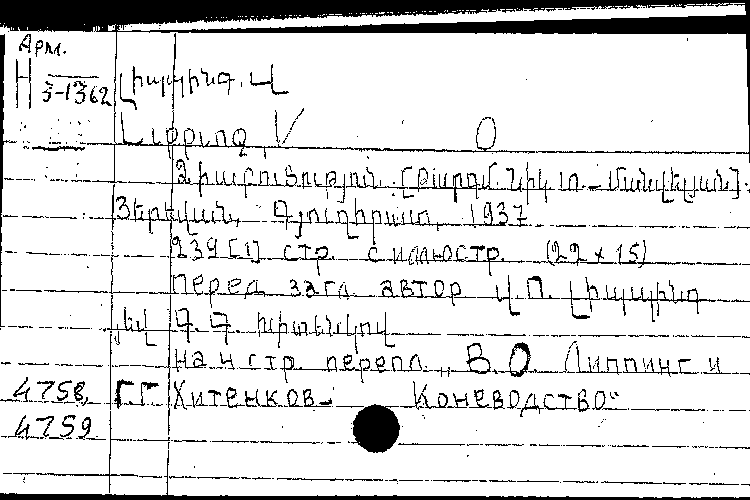 Арм.
Н 3-1362 Լիպպինգ. Վ
Lipping, V O
Ձիաբուծություն. [Թարգմ. Նիկ. տ.-Մանվելյան].
Յերեվան, Գյուղհրատ, 1937
239 [1] стр. с иллюстр. (22 x 15)
перед загл. автор Վ.Ո. Լիպպինգ
յեվ Գ. Գ. Խիտենկով
на 4 стр. перепл. „В.О. Липпинг и
4758, Г.Г. Хитенков- Коневодство"
4759